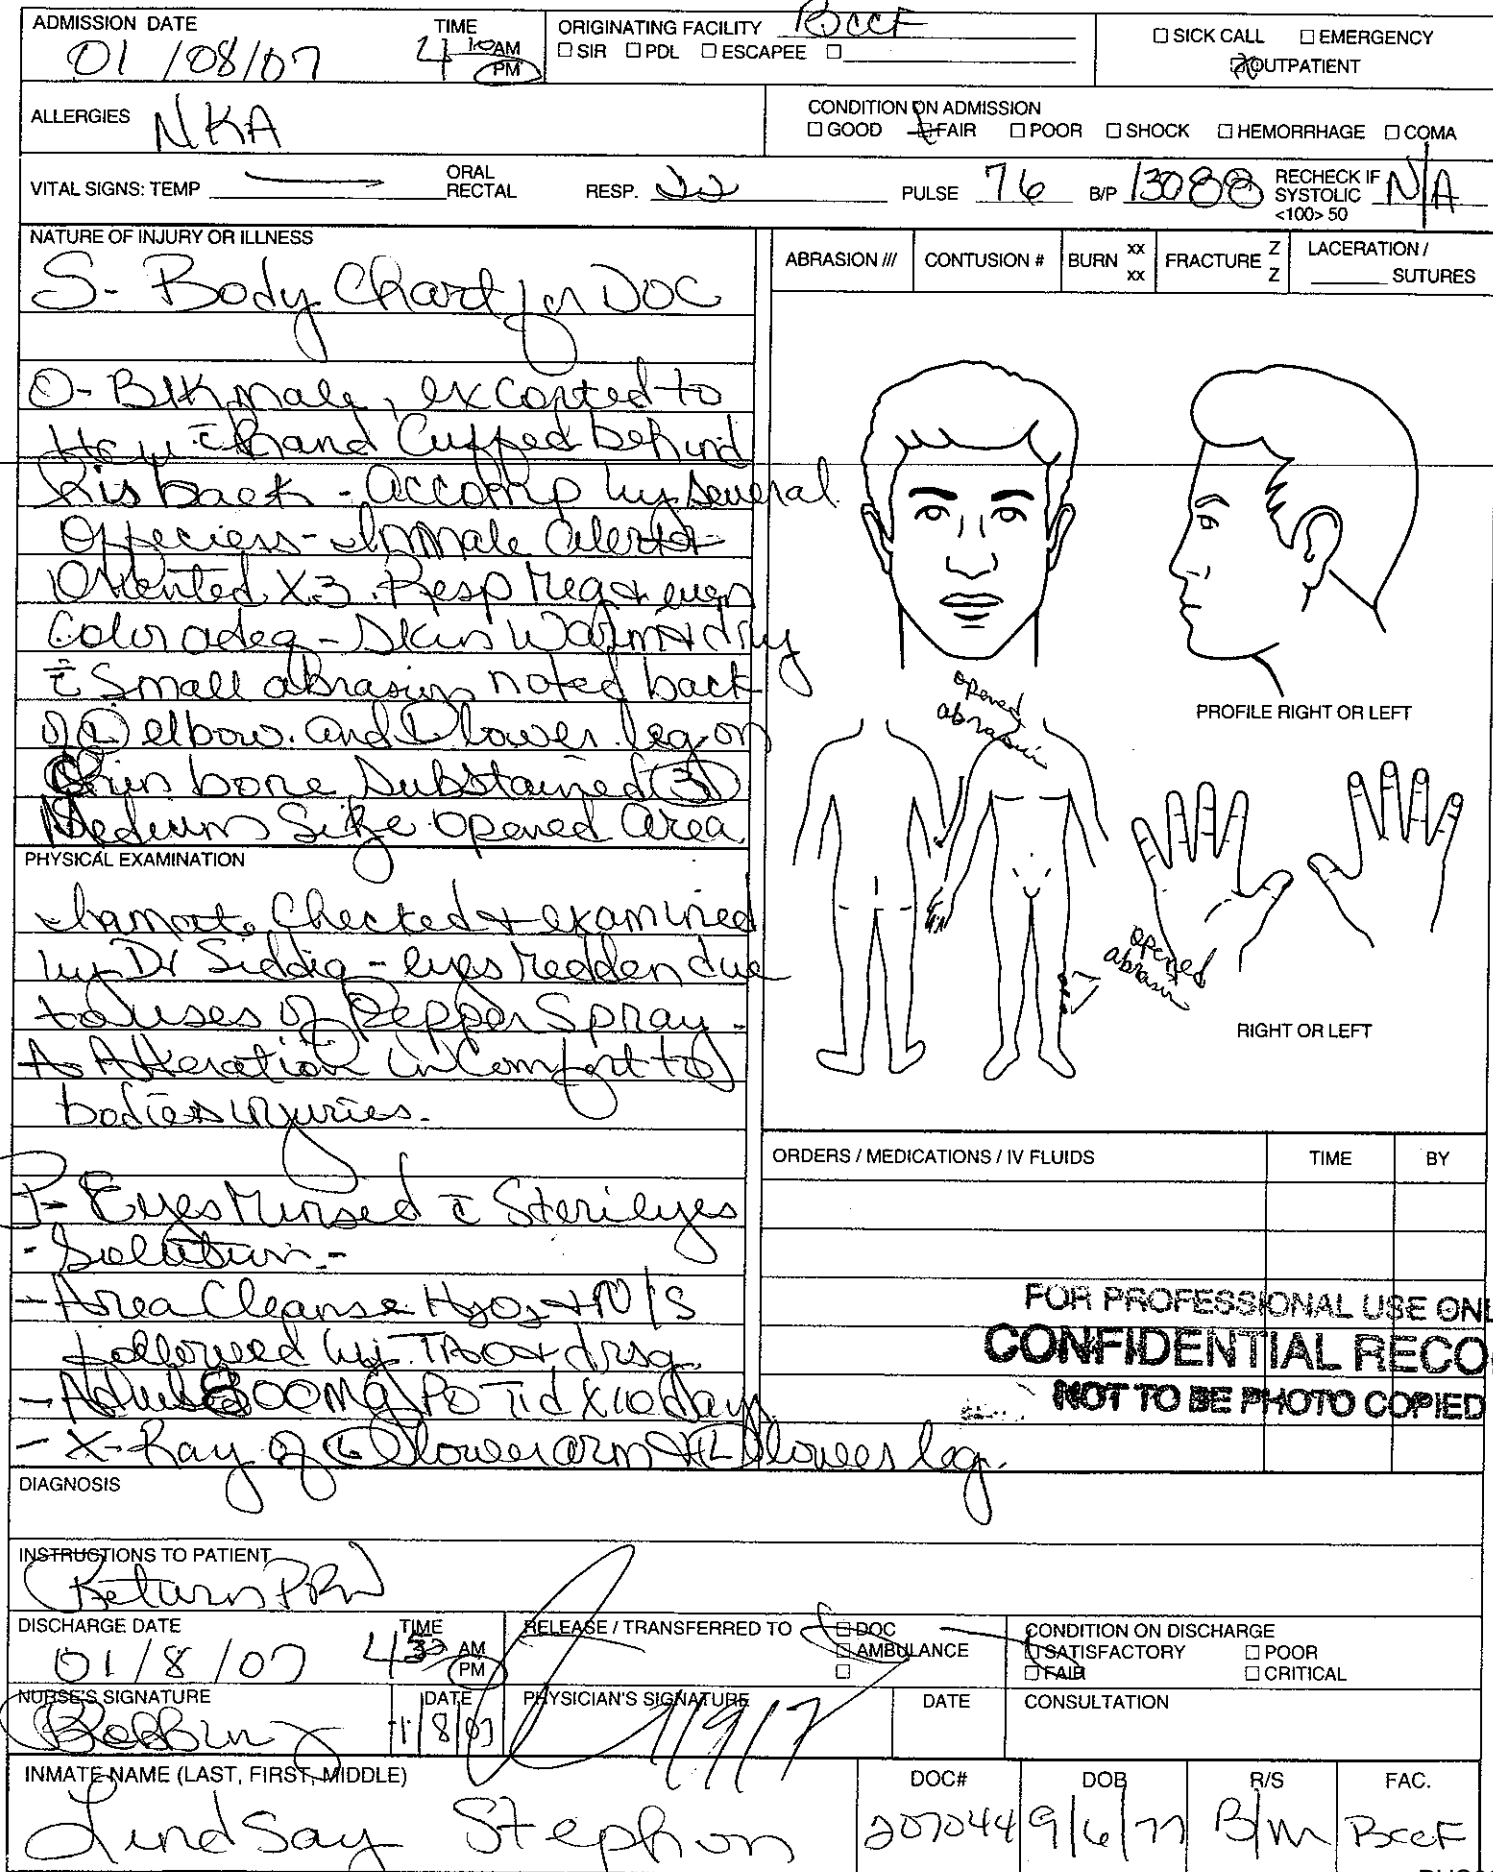 ADMISSION DATE
01/08/07
TIME
4 10 AM
PM
ORIGINATING FACILITY BCCF
□ SIR □ PDL □ ESCAPEE □
□ SICK CALL □ EMERGENCY
OUTPATIENT
ALLERGIES NKA
CONDITION ON ADMISSION
□ GOOD □ FAIR □ POOR □ SHOCK □ HEMORRHAGE □ COMA
VITAL SIGNS: TEMP
ORAL
RECTAL
RESP. 22
PULSE 76
B/P 130 88
RECHECK IF
SYSTOLIC
<100> 50
N/A
NATURE OF INJURY OR ILLNESS
S- Body Chart for DOC
O- Blk male, excorted to
Hcu c̄ hand Cuffed behind
his back - accomp by several
Officiess - Inmate alert +
Oriented X3. Resp reg + even
Color adeq - Skin Warm + dry
c̄ Small abrasion noted back
of L elbow. and L lower leg on
Shin bone Substained 3
Medium Size opened area
ABRASION ///
CONTUSION #
BURN xx
xx
FRACTURE Z
Z
LACERATION /
SUTURES
opened
abrasion
PROFILE RIGHT OR LEFT
opened
abrasion
RIGHT OR LEFT
PHYSICAL EXAMINATION
Inmate Checked + examined
by Dr Siddiq - eyes redden due
to uses of Pepper Spray -
A Alteration in Comfort to
bodies injuries.
P- Eyes rinsed c̄ Sterileyes
- Solution -
- Area Cleanse H2O2 + N/S
followed by TAO + drsg
- Advil 800MG PO Tid x 10 days
- X-Ray of L lower arm + L lower leg.
ORDERS / MEDICATIONS / IV FLUIDS
TIME
BY
FOR PROFESSIONAL USE ONL
CONFIDENTIAL RECO
NOT TO BE PHOTO COPIED
DIAGNOSIS
INSTRUCTIONS TO PATIENT
Return PRN
DISCHARGE DATE
01/8/07
TIME
4 AM
PM
RELEASE / TRANSFERRED TO □ DOC
□ AMBULANCE
□
CONDITION ON DISCHARGE
□ SATISFACTORY □ POOR
□ FAIR □ CRITICAL
NURSE'S SIGNATURE
DATE
1/8/07
PHYSICIAN'S SIGNATURE
1/9/7
DATE
CONSULTATION
INMATE NAME (LAST, FIRST, MIDDLE)
Lindsay Stephon
DOC#
207044
DOB
9/6/77
R/S
B/M
FAC.
BccF